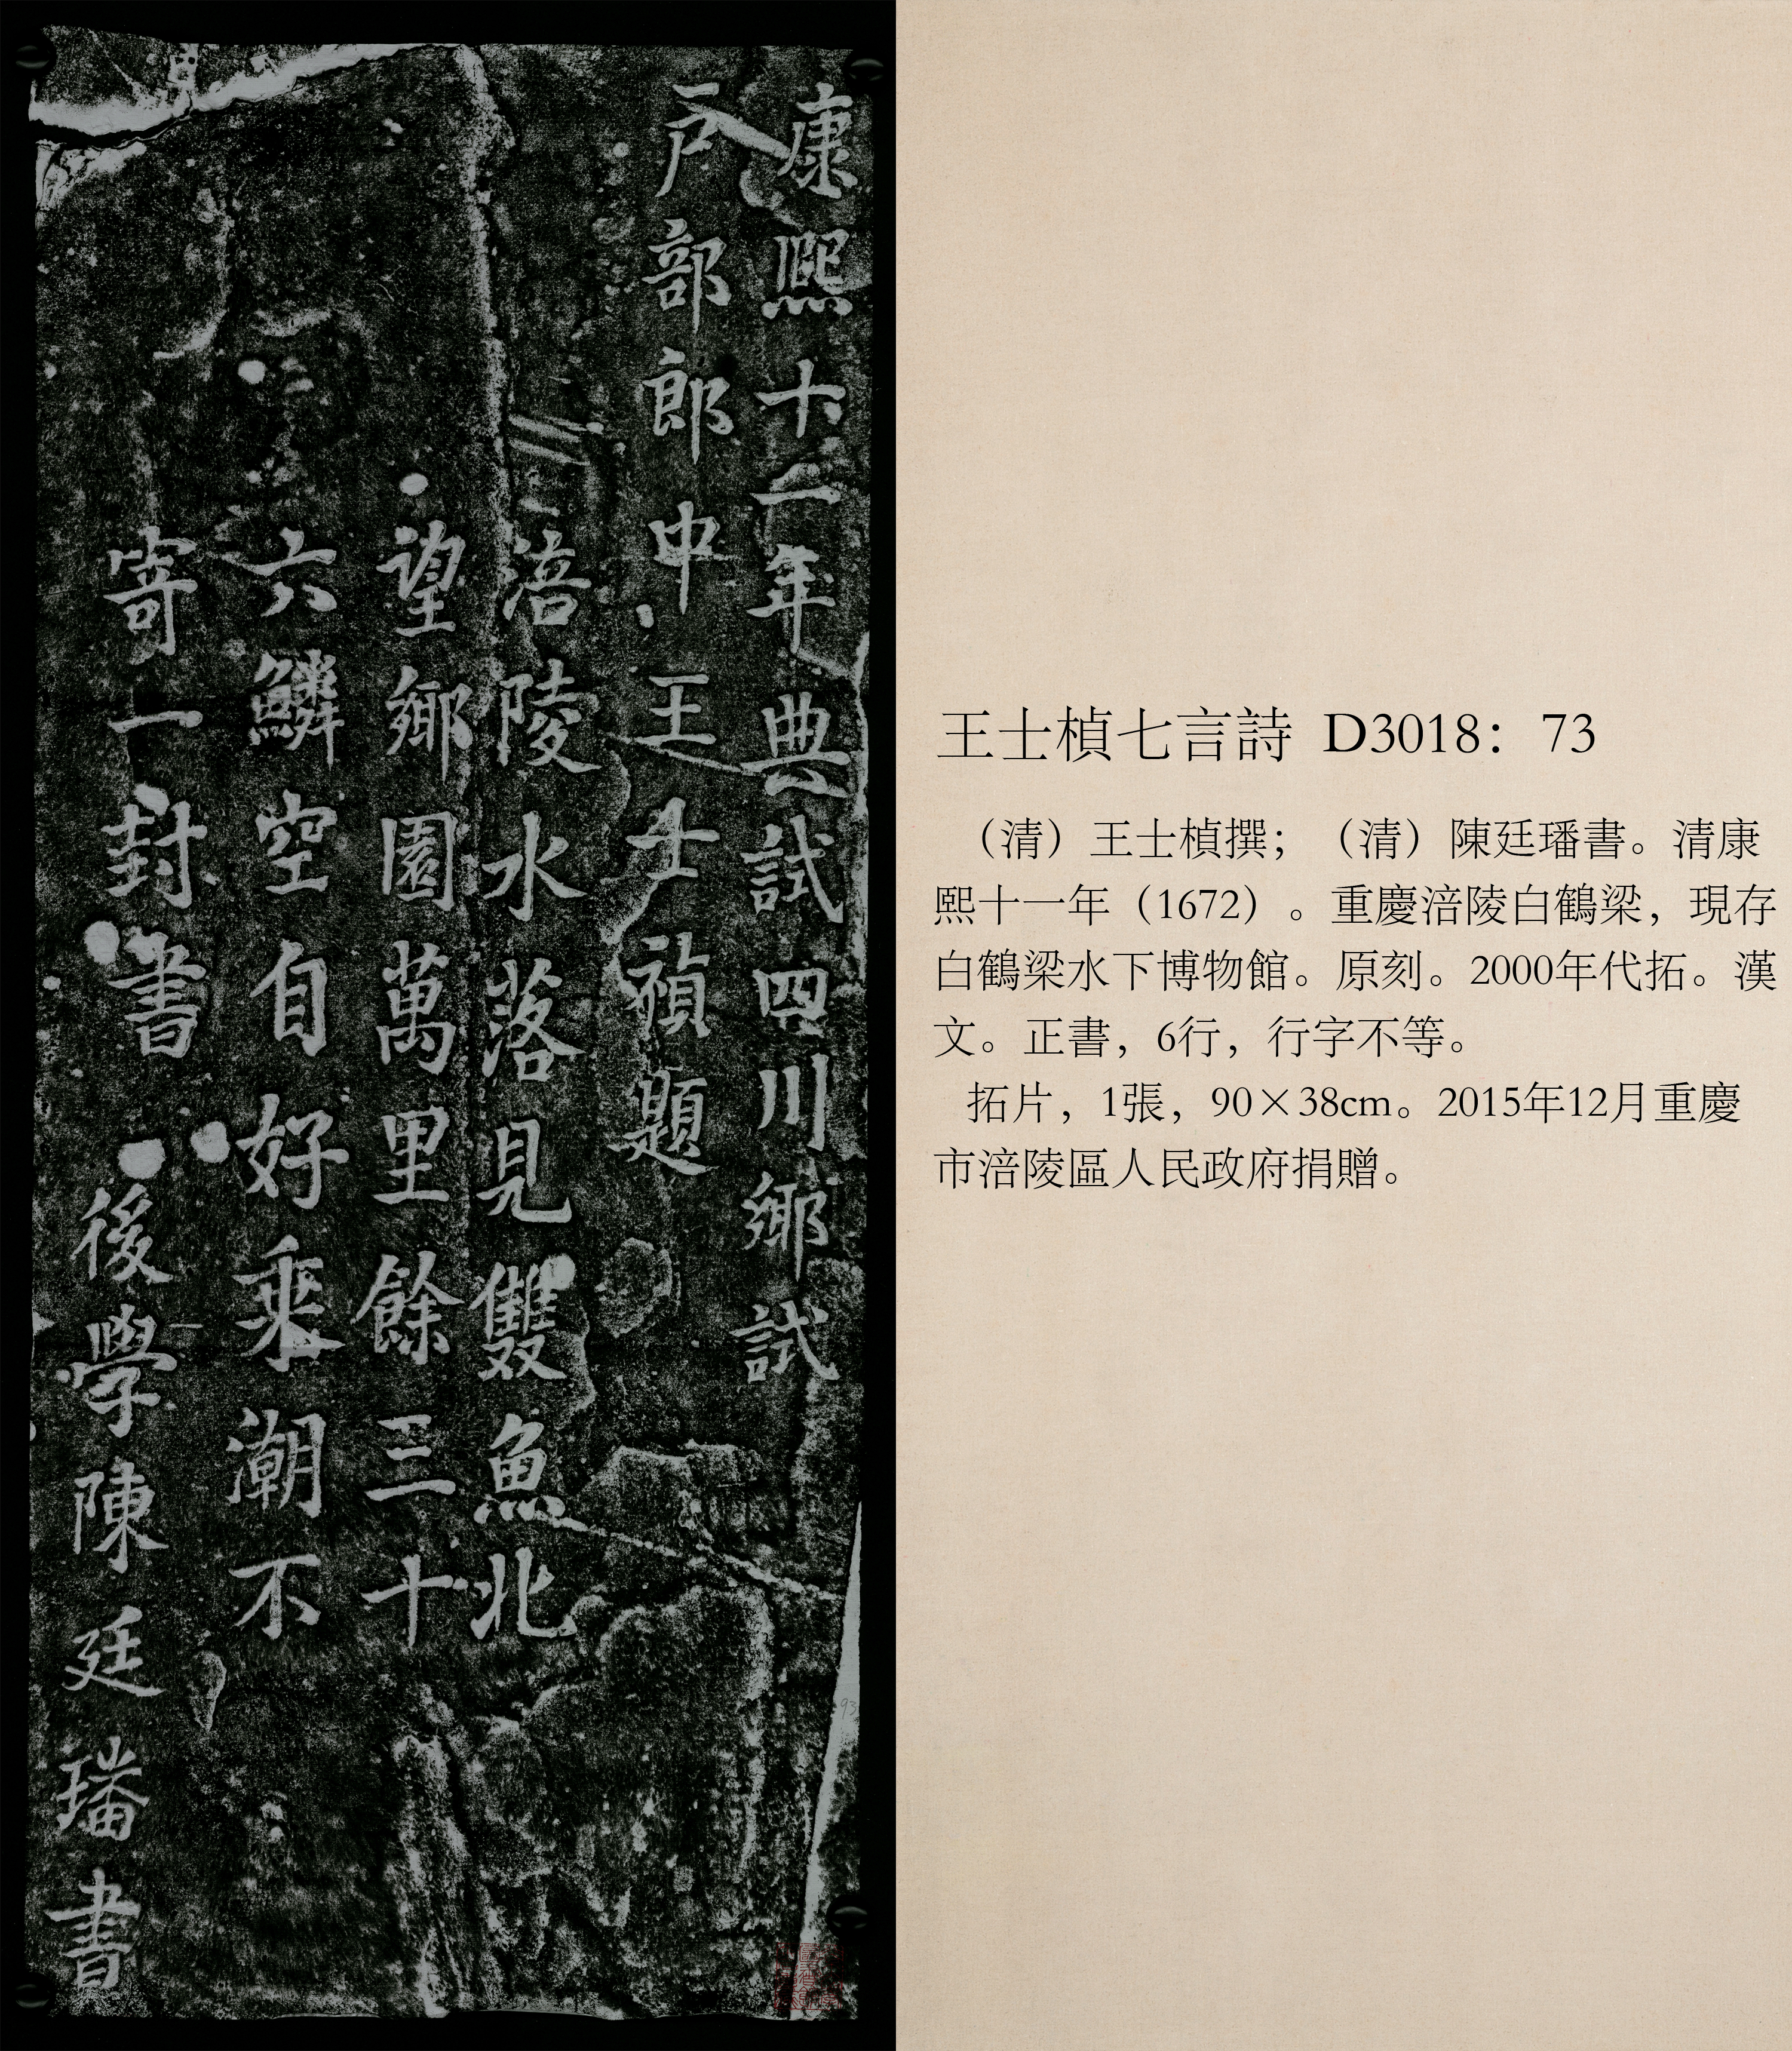 康熙十二年典試四川鄉試
戶部郎中王士禎題
涪陵水落見雙魚北
望鄉園萬里餘三十
六鱗空自好乘潮不
寄一封書　後學陳廷璠書
王士楨七言詩 D3018：73
（清）王士楨撰；（清）陳廷璠書。清康
熙十一年（1672）。重慶涪陵白鶴梁，現存
白鶴梁水下博物館。原刻。2000年代拓。漢
文。正書，6行，行字不等。
拓片，1張，90×38cm。2015年12月重慶
市涪陵區人民政府捐贈。